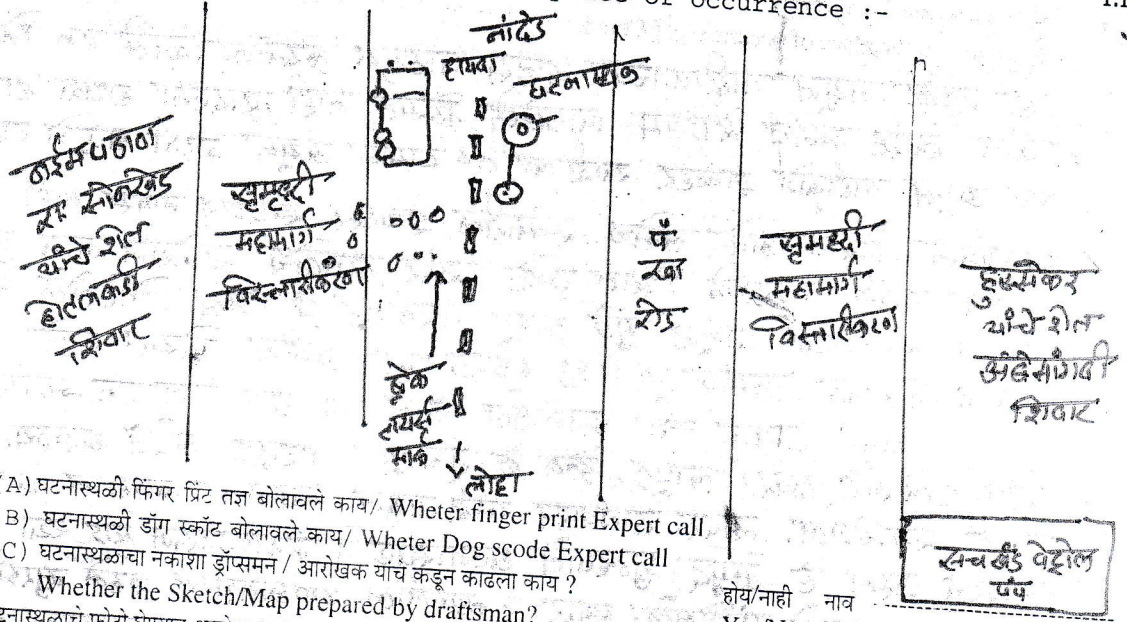 of occurrence :-
नांदेड
हायवा
घटनास्थळ
नईम पठाण
रा. सोनखेड
यांचे शेत
होटलवाडी
शिवार
समृद्धी
महामार्ग
विस्तारीकरण
पं
खा
रोड
समृद्धी
महामार्ग
विस्तारीकरण
हुस्सेकर
यांचे शेत
अंबेसांगवी
शिवार
ब्रेक
टायर्स
मार्क
लोहा
सचखंड पेट्रोल
पंप
A) घटनास्थळी फिंगर प्रिंट तज्ञ बोलावले काय/ Wheter finger print Expert call
B) घटनास्थळी डॉग स्कॉट बोलावले काय/ Wheter Dog scode Expert call
C) घटनास्थळाचा नकाशा ड्रॉप्समन / आरोखक यांचे कडून काढला काय ?
Whether the Sketch/Map prepared by draftsman?
होय/नाही नाव